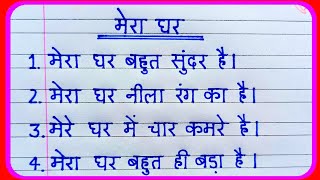 मेरा घर
1. मेरा घर बहुत सुंदर है।
2. मेरा घर नीला रंग का है।
3. मेरे घर में चार कमरे है।
4. मेरा घर बहुत ही बड़ा है।